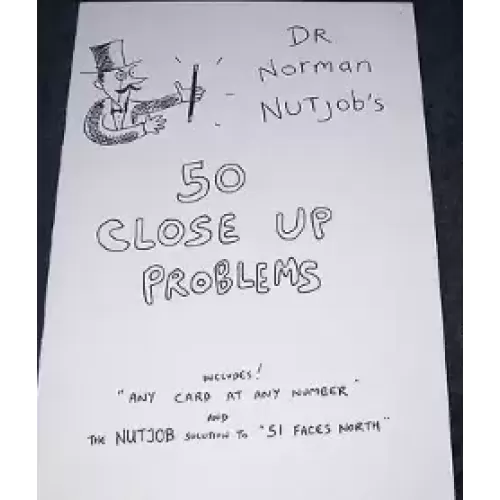 DR
Norman
NUTJob's
50
CLOSE UP
PROBLEMS
INCLUDES!
"ANY CARD AT ANY NUMBER"
AND
THE NUTJOB SOLUTION TO "51 FACES NORTH"